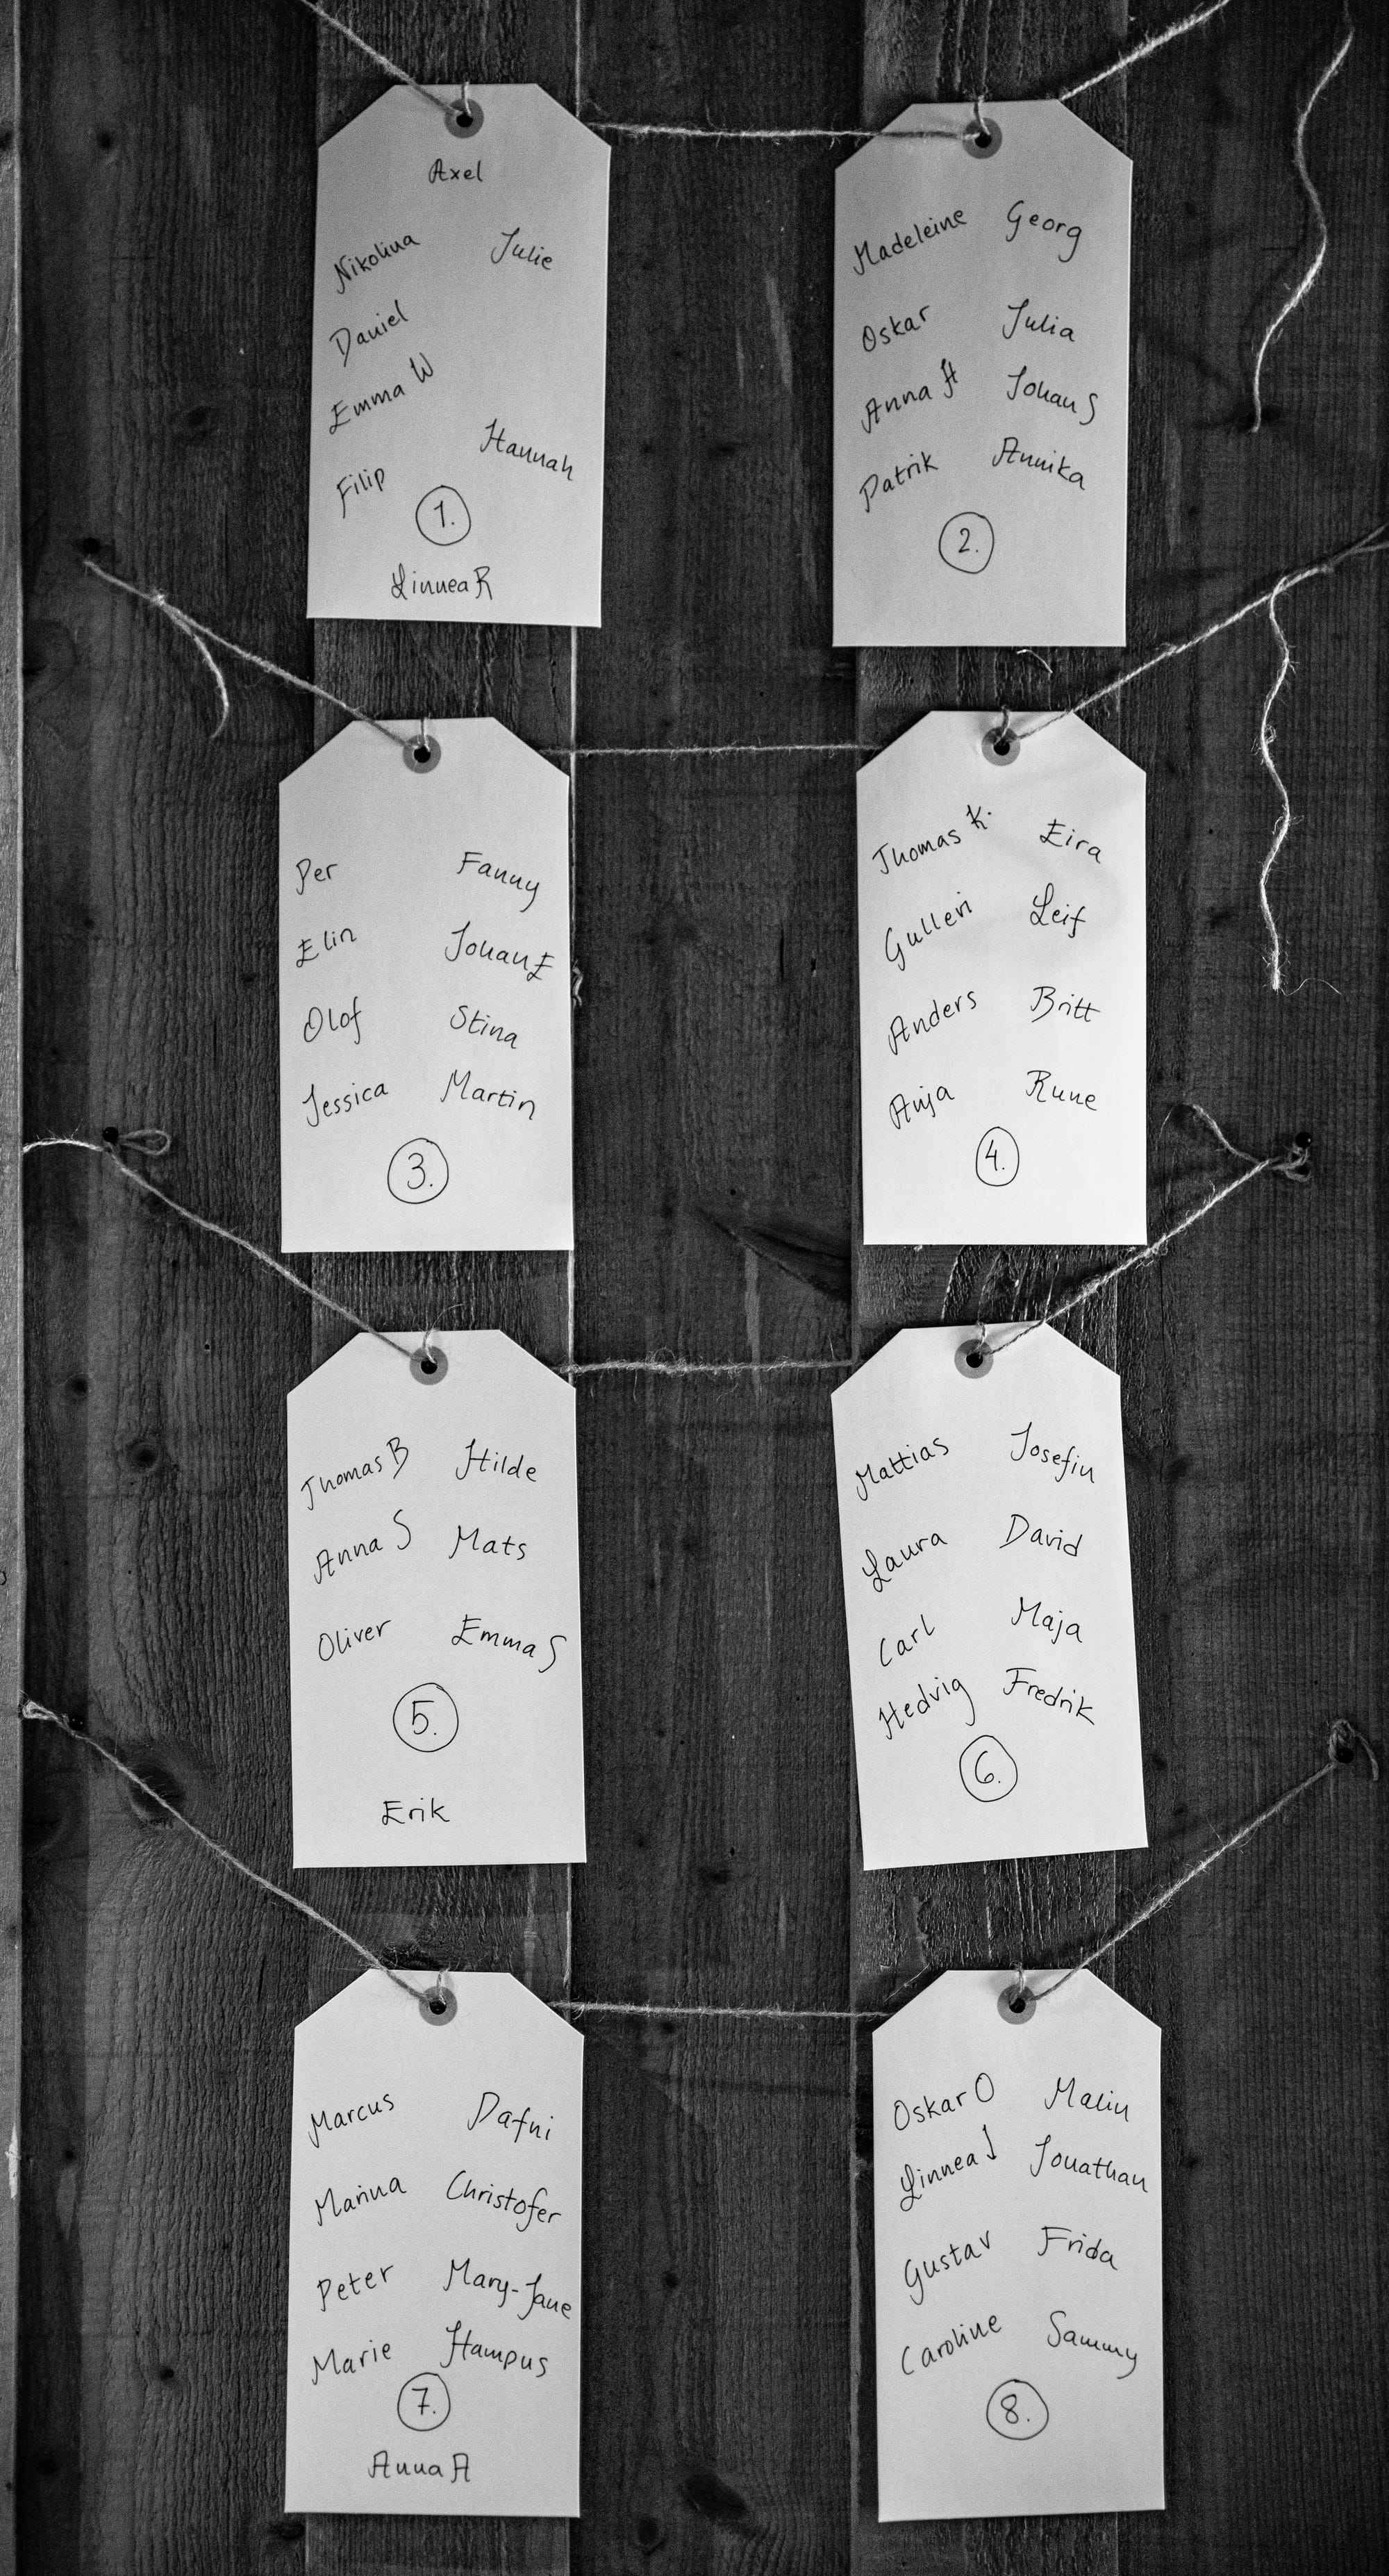 Axel
Nikolina Julie
Daniel
Emma W
Hannah
Filip
1.
Linnea R
Madeleine Georg
Oskar Julia
Anna H Johan S
Patrik Annika
2.
Per Fanny
Elin Johan E
Olof Stina
Jessica Martin
3.
Thomas K. Eira
Gullevi Leif
Anders Britt
Anja Rune
4.
Thomas B Hilde
Anna S Mats
Oliver Emma S
5.
Erik
Mattias Josefin
Laura David
Carl Maja
Hedvig Fredrik
6.
Marcus Dafni
Marina Christofer
Peter Mary-Jane
Marie Hampus
7.
Anna A
Oskar O Malin
Linnea J Jonathan
Gustav Frida
Caroline Sammy
8.